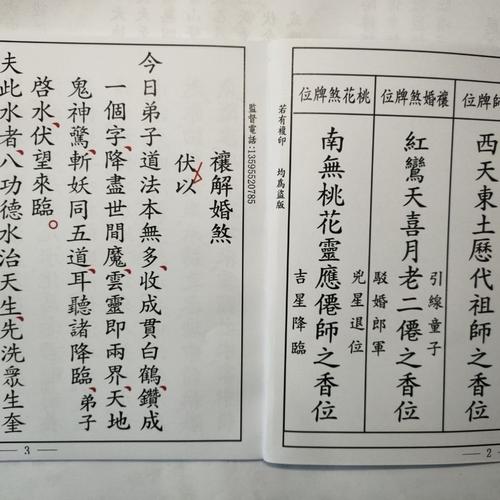 師牌位
西天東土歷代祖師之香位
禳婚煞牌位
引線童子
紅鸞天喜月老二僊之香位
駁婚郎軍
桃花煞牌位
兇星退位
南無桃花靈應僊師之香位
吉星降臨
2
若有複印 均爲盜版
監督電話:13595520785
禳解婚煞
伏以
今日弟子道法本無多、收成貫白鶴、鑽成
一個字、降盡世間魔、雲靈即兩界、天地
鬼神驚、斬妖同五道、耳聽諸降臨、弟子
啓水、伏望來臨。
夫此水者八功德水治天生、先洗衆生奎
3